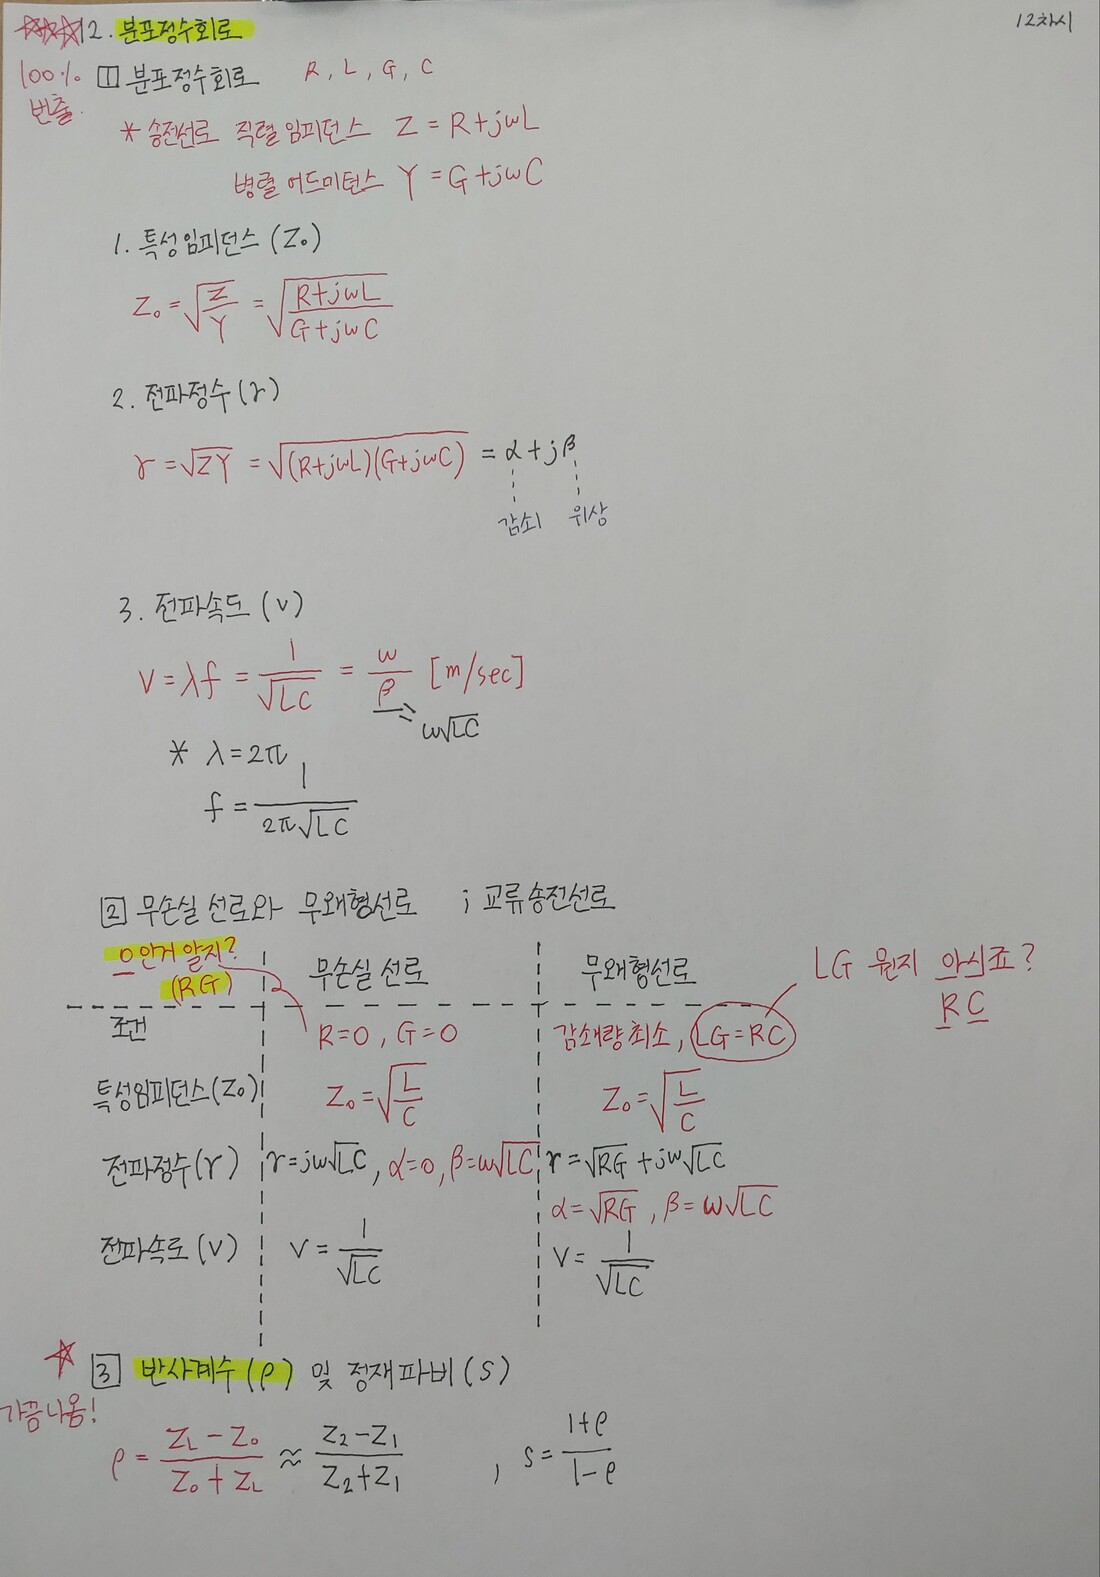 12. 분포정수회로
12차시
100% 빈출
1 분포정수회로 R, L, G, C
* 송전선로 직렬 임피던스 Z = R+jwL
병렬 어드미턴스 Y = G+jwC
1. 특성임피던스 (Z₀)
Z₀ = √(Z/Y) = √((R+jwL)/(G+jwC))
2. 전파정수 (γ)
γ = √ZY = √((R+jwL)(G+jwC)) = α + jβ
감쇠 위상
3. 전파속도 (v)
V = λf = 1/√LC = w/β [m/sec]
w√LC
* λ = 2π
f = 1/(2π√LC)
2 무손실 선로와 무왜형선로 ; 교류송전선로
안거 알지?
(RG)
무손실 선로
무왜형선로
LG 뭔지 아시죠?
RC
조건 R=0, G=0 감쇄량 최소, LG=RC
특성임피던스(Z₀) Z₀ = √(L/C) Z₀ = √(L/C)
전파정수(γ) γ = jw√LC, α=0, β=w√LC γ = √RG + jw√LC
α = √RG, β = w√LC
전파속로 (V) V = 1/√LC V = 1/√LC
3 반사계수(ρ) 및 정재파비(S)
가끔나옴!
ρ = (Z_L - Z₀)/(Z₀ + Z_L) ≈ (Z₂-Z₁)/(Z₂+Z₁) , S = (1+ρ)/(1-ρ)